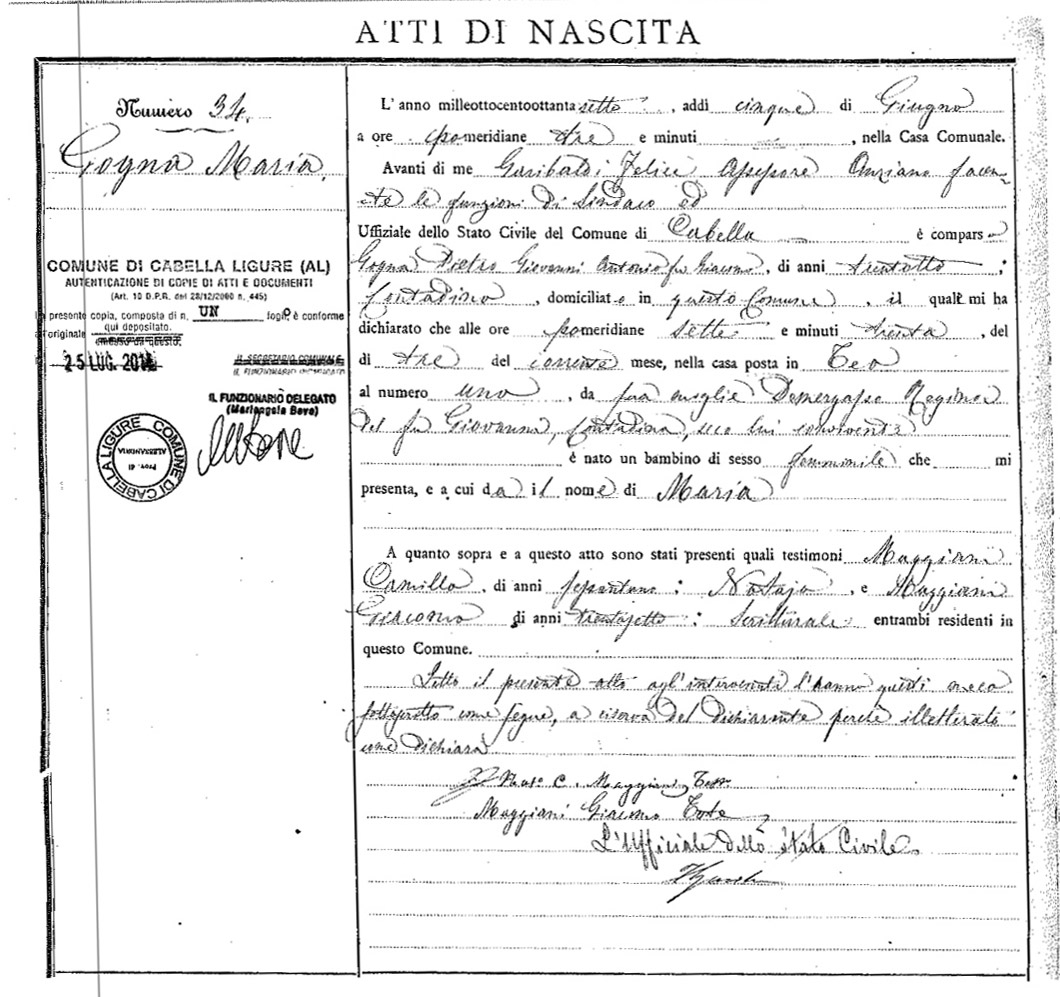 ATTI DI NASCITA
Numero 34.
Gogna Maria.
COMUNE DI CABELLA LIGURE (AL)
AUTENTICAZIONE DI COPIE DI ATTI E DOCUMENTI
(Art. 10 D.P.R. del 28/12/2000 n. 445)
presente copia, composta di n. UN fogli è conforme
originale
qui depositato.
25 LUG. 201
IL SEGRETARIO COMUNALE
IL FUNZIONARIO INCARICATO
IL FUNZIONARIO DELEGATO
(Mariangela Bove)
COMUNE DI CABELLA LIGURE
Prov. di
ALESSANDRIA
L'anno milleottocentoottantasette, addì cinque di Giugno
a ore pomeridiane tre e minuti , nella Casa Comunale.
Avanti di me Garibaldi Felice Assessore Anziano facen-
te le funzioni di Sindaco ed
Uffiziale dello Stato Civile del Comune di Cabella è comparso
Gogna Pietro Giovanni Antonio fu Giacomo, di anni trentotto;
Contadino, domiciliato in questo Comune, il quale mi ha
dichiarato che alle ore pomeridiane sette e minuti trenta, del
dì tre del corrente mese, nella casa posta in Teo
al numero uno, da sua moglie Demergasso Regina
del fu Giovanni, Contadina, seco lui convivente
è nato un bambino di sesso femminile che mi
presenta, e a cui dà il nome di Maria
A quanto sopra e a questo atto sono stati presenti quali testimoni Maggiani
Camillo, di anni sessantuno; Notajo, e Maggiani
Giacomo di anni trentasette; Scritturale entrambi residenti in
questo Comune.
Letto il presente atto agl'intervenuti l'hanno questi meco
sottoscritto come segue, a riserva del dichiarante perchè illetterato
come dichiara
Not. C. Maggiani Test.
Maggiani Giacomo Teste
L'Ufficiale dello Stato Civile